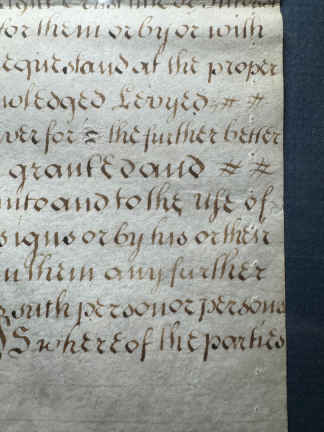 for them or by or with
equest and at the proper
wledged Levyed
ver for = the further better
granted and
unto and to the use of
signs or by his or their
n them any further
such person or persons
S whereof the parties